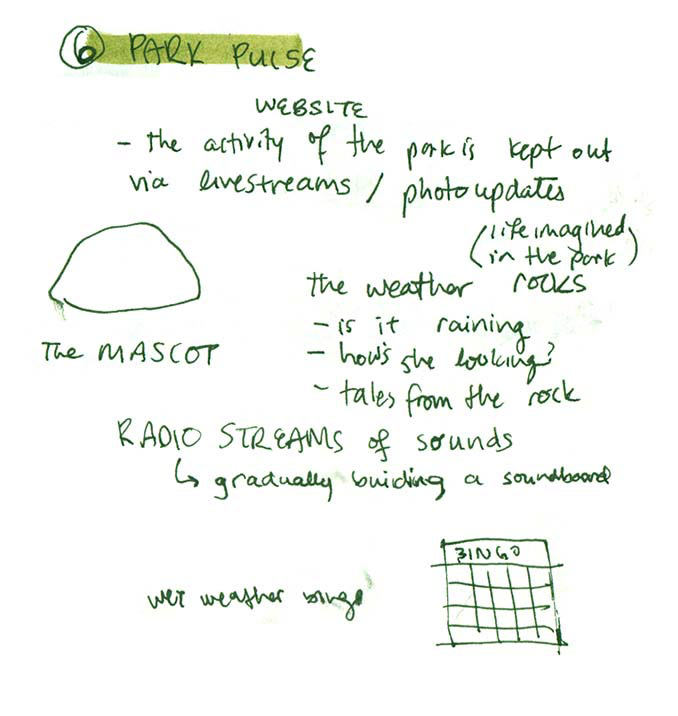 6 PARK PULSE
WEBSITE
- the activity of the park is kept out
via livestreams / photo updates
(life imagined
in the park)
the weather rocks
- is it raining
- how's she looking?
- tales from the rock
The MASCOT
RADIO STREAMS of sounds
↳ gradually building a soundboard
BINGO
wet weather bingo